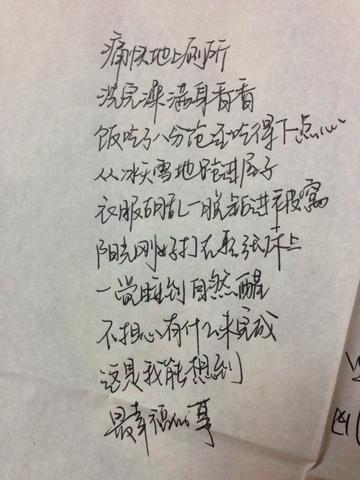 痛快地上厕所
洗完澡满身香香
饭吃了八分饱还吃得下点心
从冰天雪地跑进屋子
衣服胡乱一脱钻进被窝
阳光刚好打在那张床上
一觉睡到自然醒
不担心有什么未完成
这是我能想到
最幸福的事